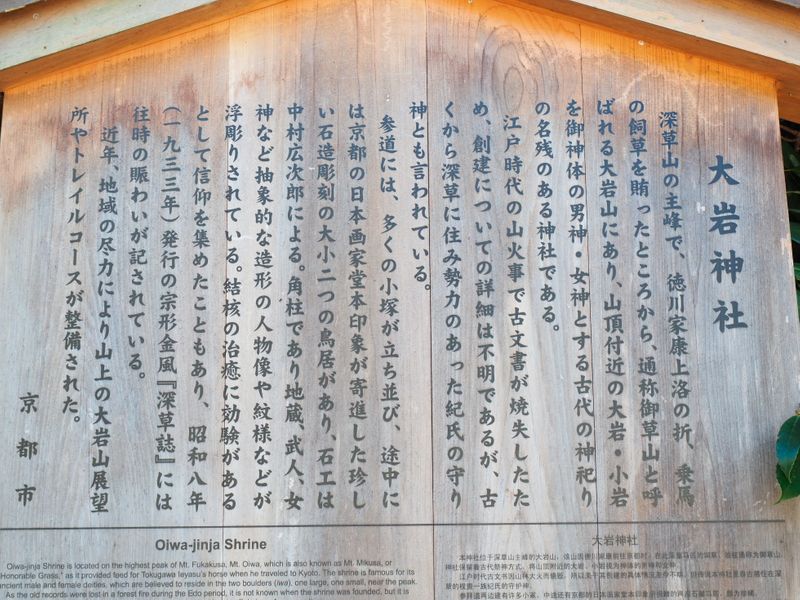 大岩神社
深草山の主峰で、徳川家康上洛の折、乗馬
の飼草を賄ったところから、通称御草山と呼
ばれる大岩山にあり、山頂付近の大岩・小岩
を御神体の男神・女神とする古代の神祀り
の名残のある神社である。
江戸時代の山火事で古文書が焼失したた
め、創建についての詳細は不明であるが、古
くから深草に住み勢力のあった紀氏の守り
神とも言われている。
参道には、多くの小塚が立ち並び、途中に
は京都の日本画家堂本印象が寄進した珍し
い石造彫刻の大小二つの鳥居があり、石工は
中村広次郎による。角柱であり地蔵、武人、女
神など抽象的な造形の人物像や紋様などが
浮彫りされている。結核の治癒に効験がある
として信仰を集めたこともあり、昭和八年
(一九三三年)発行の宗形金風『深草誌』には
往時の賑わいが記されている。
近年、地域の尽力により山上の大岩山展望
所やトレイルコースが整備された。
京都市
Oiwa-jinja Shrine
Oiwa-jinja Shrine is located on the highest peak of Mt. Fukakusa, Mt. Oiwa, which is also known as Mt. Mikusa, or
Honorable Grass," as it provided feed for Tokugawa Ieyasu's horse when he traveled to Kyoto. The shrine is famous for its
ancient male and female deities, which are believed to reside in the two boulders (iwa), one large, one small, near the peak.
As the old records were lost in a forest fire during the Edo period, it is not known when the shrine was founded, but it is
大岩神社